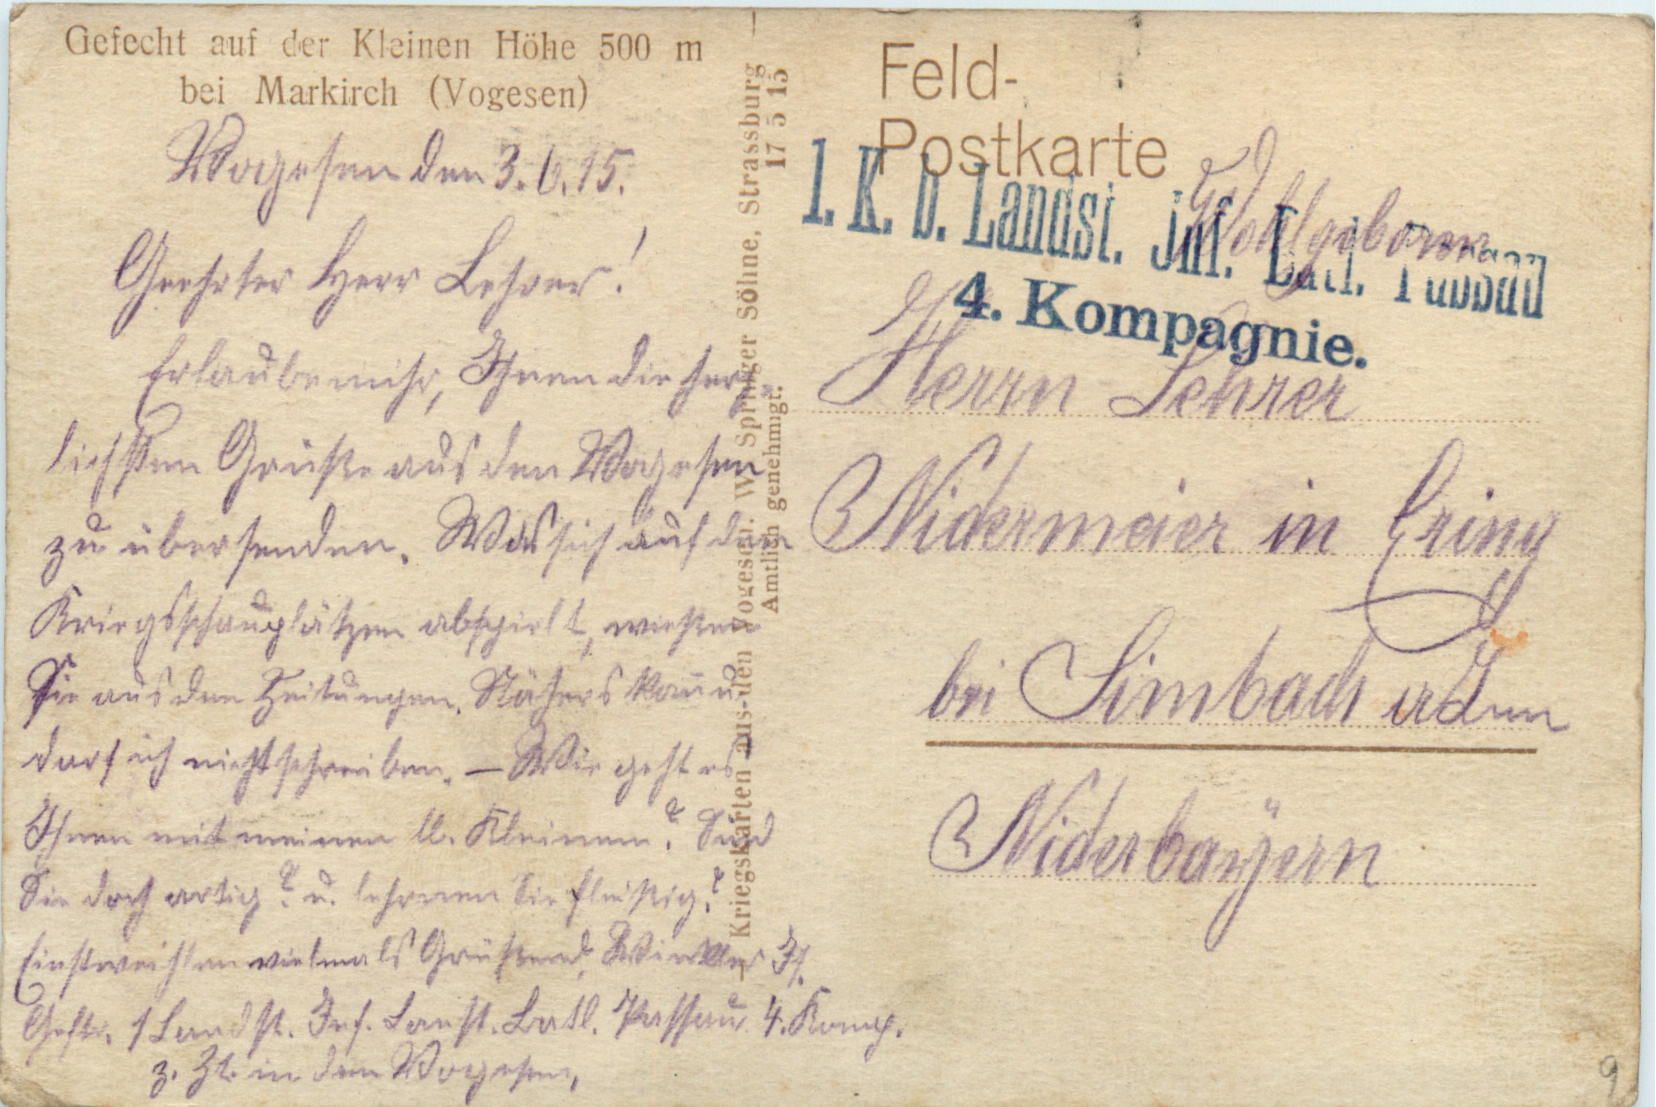 Gefecht auf der Kleinen Höhe 500 m
bei Markirch (Vogesen)
Wogesen den 3.6.15.
Geehrter Herr Lehrer!
Erlaube mihr, Ihnen die herz
lichsten Grüße aus den Wogesen
zu übersenden. Was sich auf den
Kriegsschauplätzen abspielt, wießen
Sie aus den Zeitungen. Nähers kann u
darf ich nicht schreiben. — Wie geht es
Ihnen mit meinen lb. Kleinen? Sind
Sie doch artig? u. lehrnen Sie fleißig?
Einstweihlen vielmals Grüßend,
Geftr. 1 Landst. Inf. Batl. Passau 4. Komp.
z. Zt. in den Wogesen,
— Kriegskarten aus den Vogesen. W. Springer Söhne, Strassburg —
17 5 15
Amtlich genehmigt.
Feld-
Postkarte
1. K. b. Landst. Inf. Batl. Passau
4. Kompagnie.
Wohlgeboren
Herrn Lehrer
Nidermeier in Ering
bei Simbach a/d Inn
Niderbayern
9